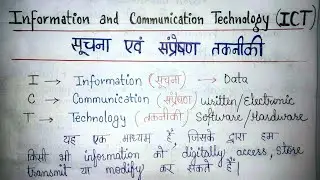 Information and Communication Technology (ICT)
सूचना एवं संप्रेषण तकनीकी
I → Information (सूचना) → Data
C → Communication (संप्रेषण) written/Electronic
T → Technology (तकनीकी) Software/Hardware
यह एक माध्यम है, जिसके द्वारा हम
किसी भी information को digitally access, store
transmit या modify कर सकते हैं।